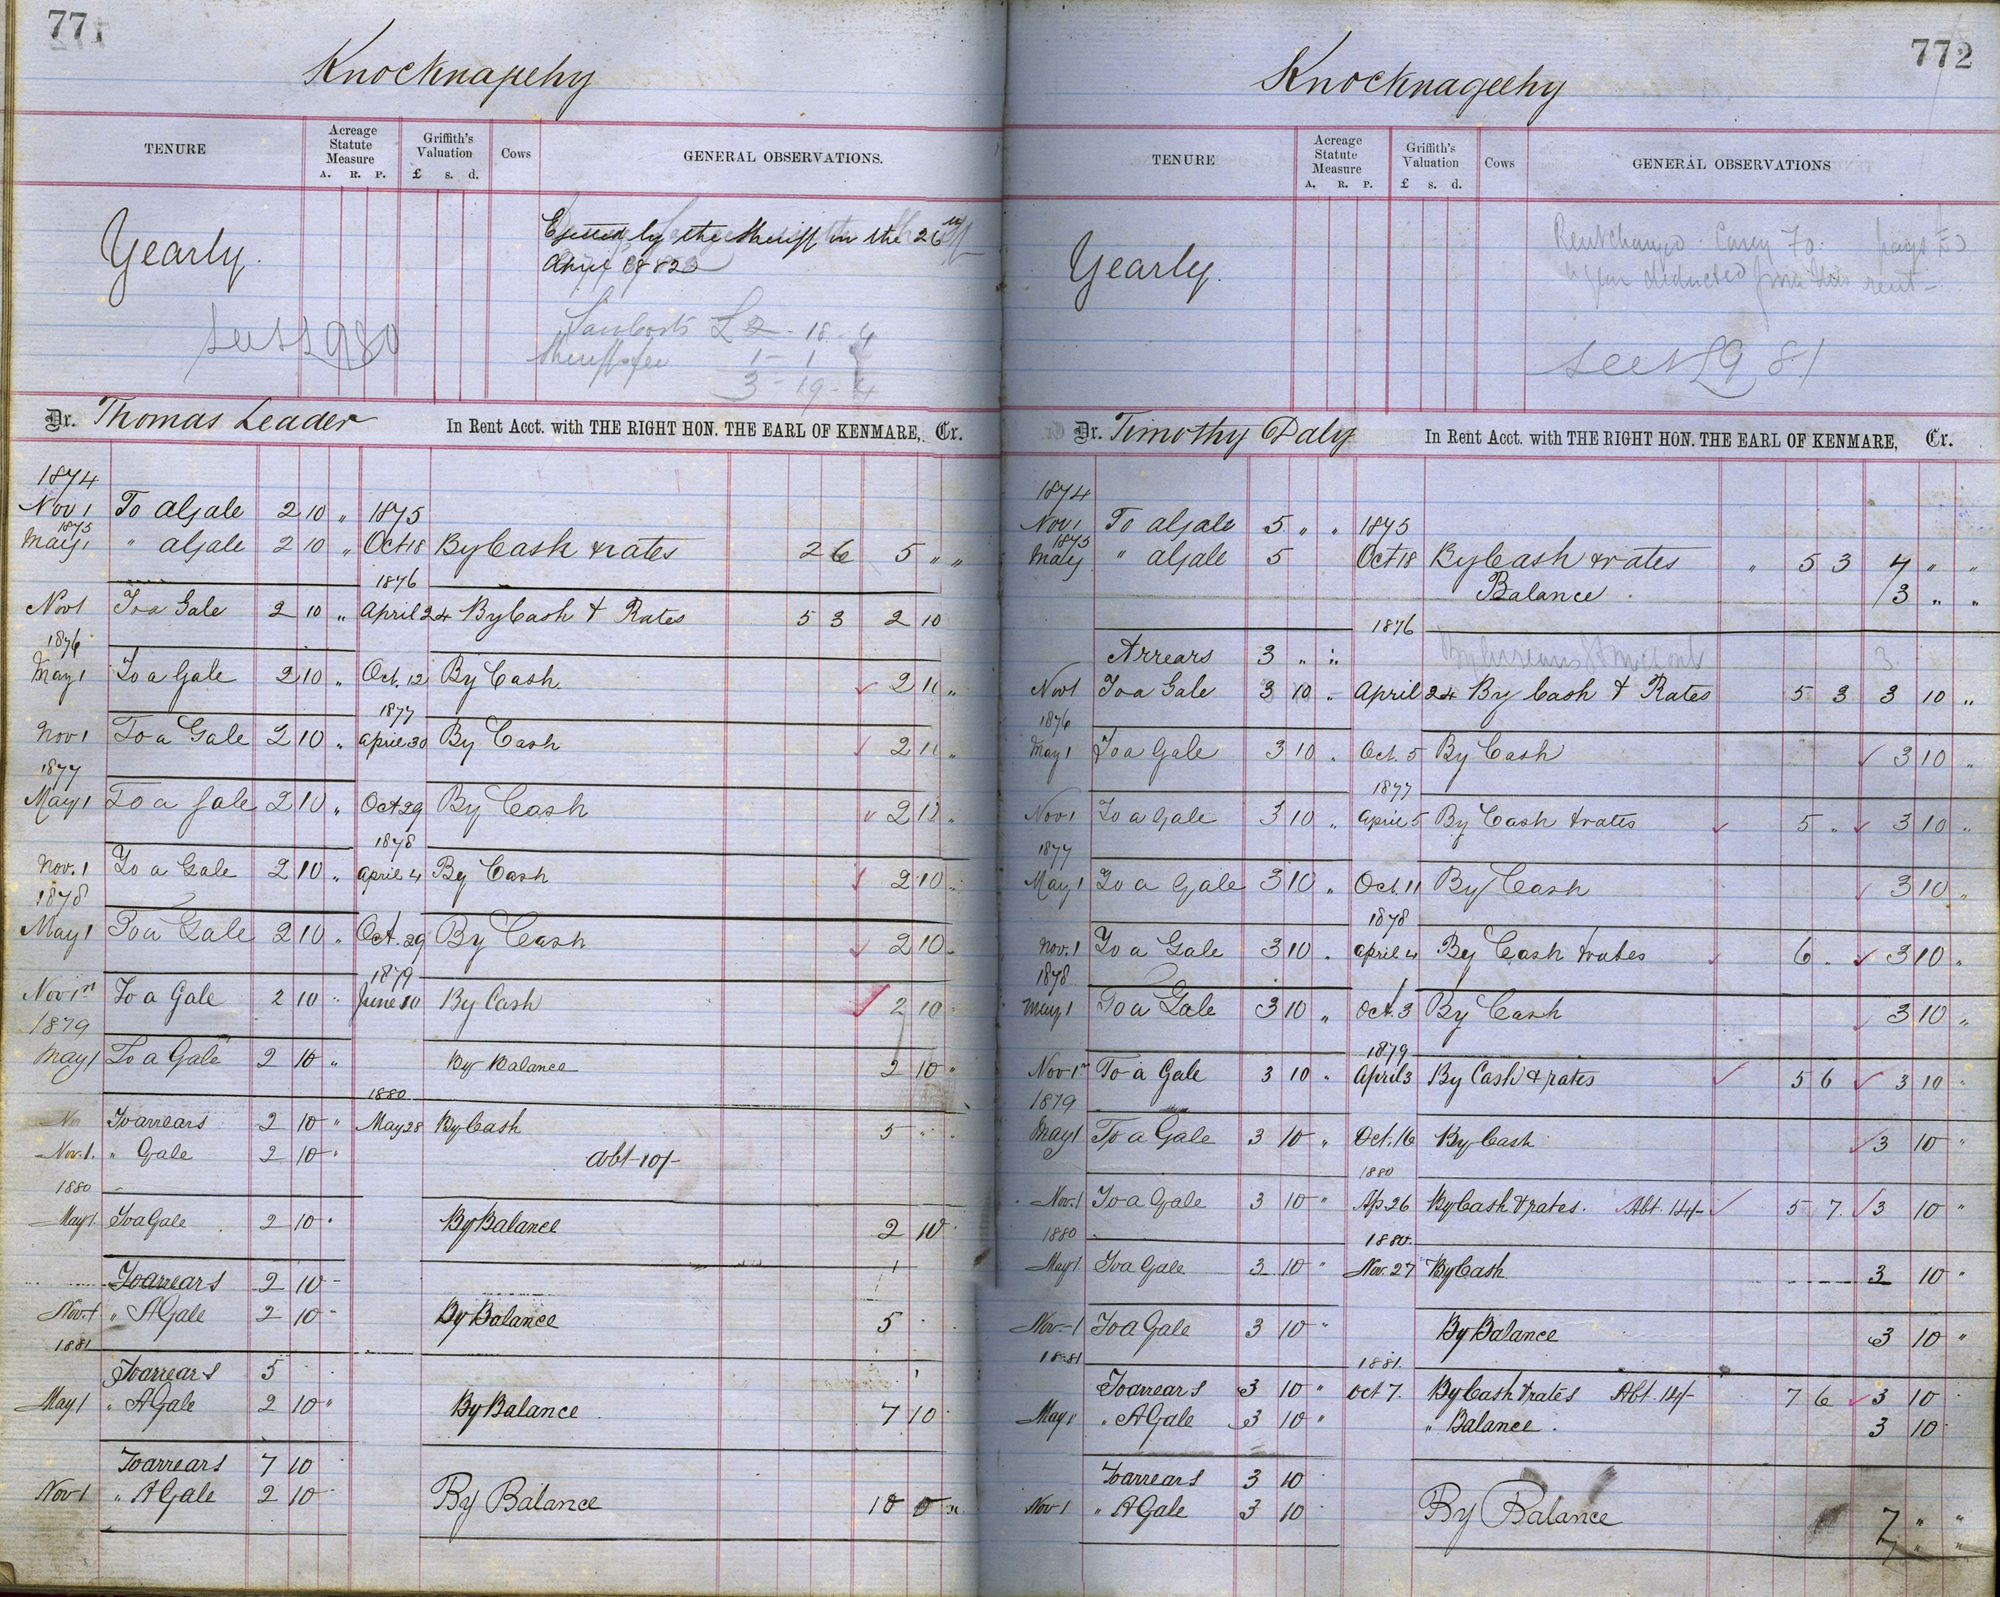 771
Knocknagehy
TENURE
Acreage Statute Measure
A. R. P.
Griffith's Valuation
£ s. d.
Cows
GENERAL OBSERVATIONS.
Yearly.
Ejected by the Sheriff on the 26th
April 1882
see L 980
Law Costs £2 - 18 - 4
Sheriffs fee 1 - 1
3 - 19 - 4
Dr. Thomas Leader In Rent Acct. with THE RIGHT HON. THE EARL OF KENMARE, Cr.
1874
Nov 1 To a Gale 2 10 " 1875
1875
May 1 " a Gale 2 10 " Oct 18 By Cash & rates 2 6 5 " "
1876
Nov 1 To a Gale 2 10 " April 24 By Cash & Rates 5 3 2 10
1876
May 1 To a Gale 2 10 " Oct. 12 By Cash 2 10 "
1877
Nov 1 To a Gale 2 10 " April 30 By Cash 2 10 "
1877
May 1 To a Gale 2 10 " Oct 29 By Cash 2 10 "
1878
Nov. 1 To a Gale 2 10 " April 4 By Cash 2 10 "
1878
May 1 To a Gale 2 10 " Oct. 29 By Cash 2 10 "
1879
Nov 1st To a Gale 2 10 " June 10 By Cash 2 10 "
1879
May 1 To a Gale 2 10 " By Balance 2 10 "
1880
To arrears 2 10 " May 28 By Cash 5 " "
Nov. 1. " Gale 2 10 " abt 10/-
1880
May 1 To a Gale 2 10 " By Balance 2 10 "
To arrears 2 10 -
Nov. 1 " A Gale 2 10 - By Balance 5
1881
To arrears 5
May 1 " A Gale 2 10 " By Balance 7 10
To arrears 7 10
Nov 1 " A Gale 2 10 By Balance 10 0 "
772
Knocknageehy
TENURE
Acreage Statute Measure
A. R. P.
Griffith's Valuation
£ s. d.
Cows
GENERAL OBSERVATIONS
Yearly.
Rent changed. Carey Fo. pays £3
a year deducted from this rent -
see L 981
Dr. Timothy Daly In Rent Acct. with THE RIGHT HON. THE EARL OF KENMARE, Cr.
1874
Nov 1 To a Gale 5 " " 1875
1875
May " a Gale 5 Oct 18 By Cash & rates " 5 3 7 " "
Balance 3 " "
1876
Arrears 3 " " 3
Nov 1 To a Gale 3 10 " April 24 By Cash & Rates 5 3 3 10 "
1876
May 1 To a Gale 3 10 " Oct. 5 By Cash 3 10 "
1877
Nov 1 To a Gale 3 10 " April 5 By Cash & rates 5 " 3 10 "
1877
May 1 To a Gale 3 10 " Oct. 11 By Cash 3 10 "
1878
Nov. 1 To a Gale 3 10 " April 4 By Cash & rates 6 " 3 10 "
1878
May 1 To a Gale 3 10 " Oct. 3 By Cash 3 10 "
1879
Nov 1st To a Gale 3 10 " April 3 By Cash & rates 5 6 3 10 "
1879
May 1 To a Gale 3 10 " Oct. 16 By Cash 3 10 "
1880
Nov. 1 To a Gale 3 10 " Ap. 26 By Cash & rates. Abt. 14/- 5 7 3 10 "
1880 1880.
May 1 To a Gale 3 10 " Nov. 27 By Cash 3 10 "
Nov - 1 To a Gale 3 10 " By Balance 3 10 "
1881 1881.
To arrears 3 10 " Oct 7. By Cash & rates Abt. 14/- 7 6 3 10
May 1 " A Gale 3 10 " " Balance. 3 10
To arrears 3 10
Nov 1 " A Gale 3 10 By Balance 7 " "